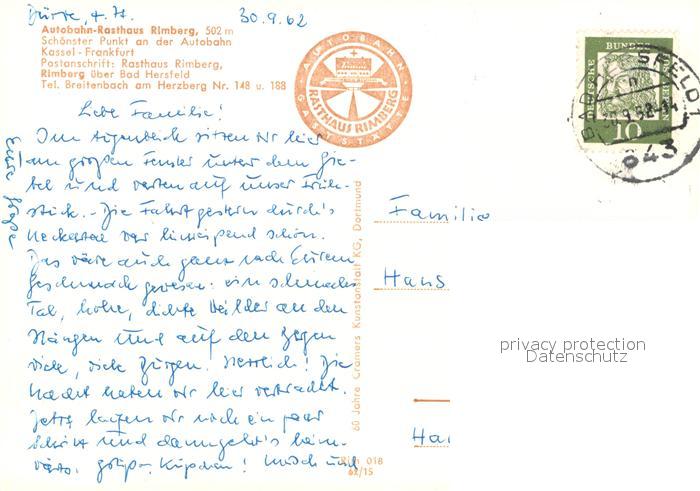 30.9.62
Autobahn-Rasthaus Rimberg, 502 m
Schönster Punkt an der Autobahn
Kassel - Frankfurt
Postanschrift: Rasthaus Rimberg,
Rimberg über Bad Hersfeld
Tel. Breitenbach am Herzberg Nr. 148 u. 188
AUTOBAHN-
RASTHAUS RIMBERG
GASTSTÄTTE
DEUTSCHE BUNDESPOST
10
30.9.62-14
643
Liebe Familie!
Im Augenblick sitzen wir hier
am großen Fenster unter dem Gie-
bel und warten auf unser Früh-
stück. - Die Fahrt gestern durch's
Neckartal war hinreißend schön.
Das wäre auch ganz nach Eurem
Geschmack gewesen: ein schmales
Tal, hohe, dichte Wälder an den
Hängen und auf den Bergen
viele, viele Burgen. Herrlich! Die
Nacht haben wir hier verbracht.
Jetzt laufen wir noch ein paar
Schritt und dann geht's heim-
wärts. Und
Familie
Hans
Ha
60 Jahre Cramers Kunstanstalt KG, Dortmund
Rim 018
62/15
privacy protection
Datenschutz